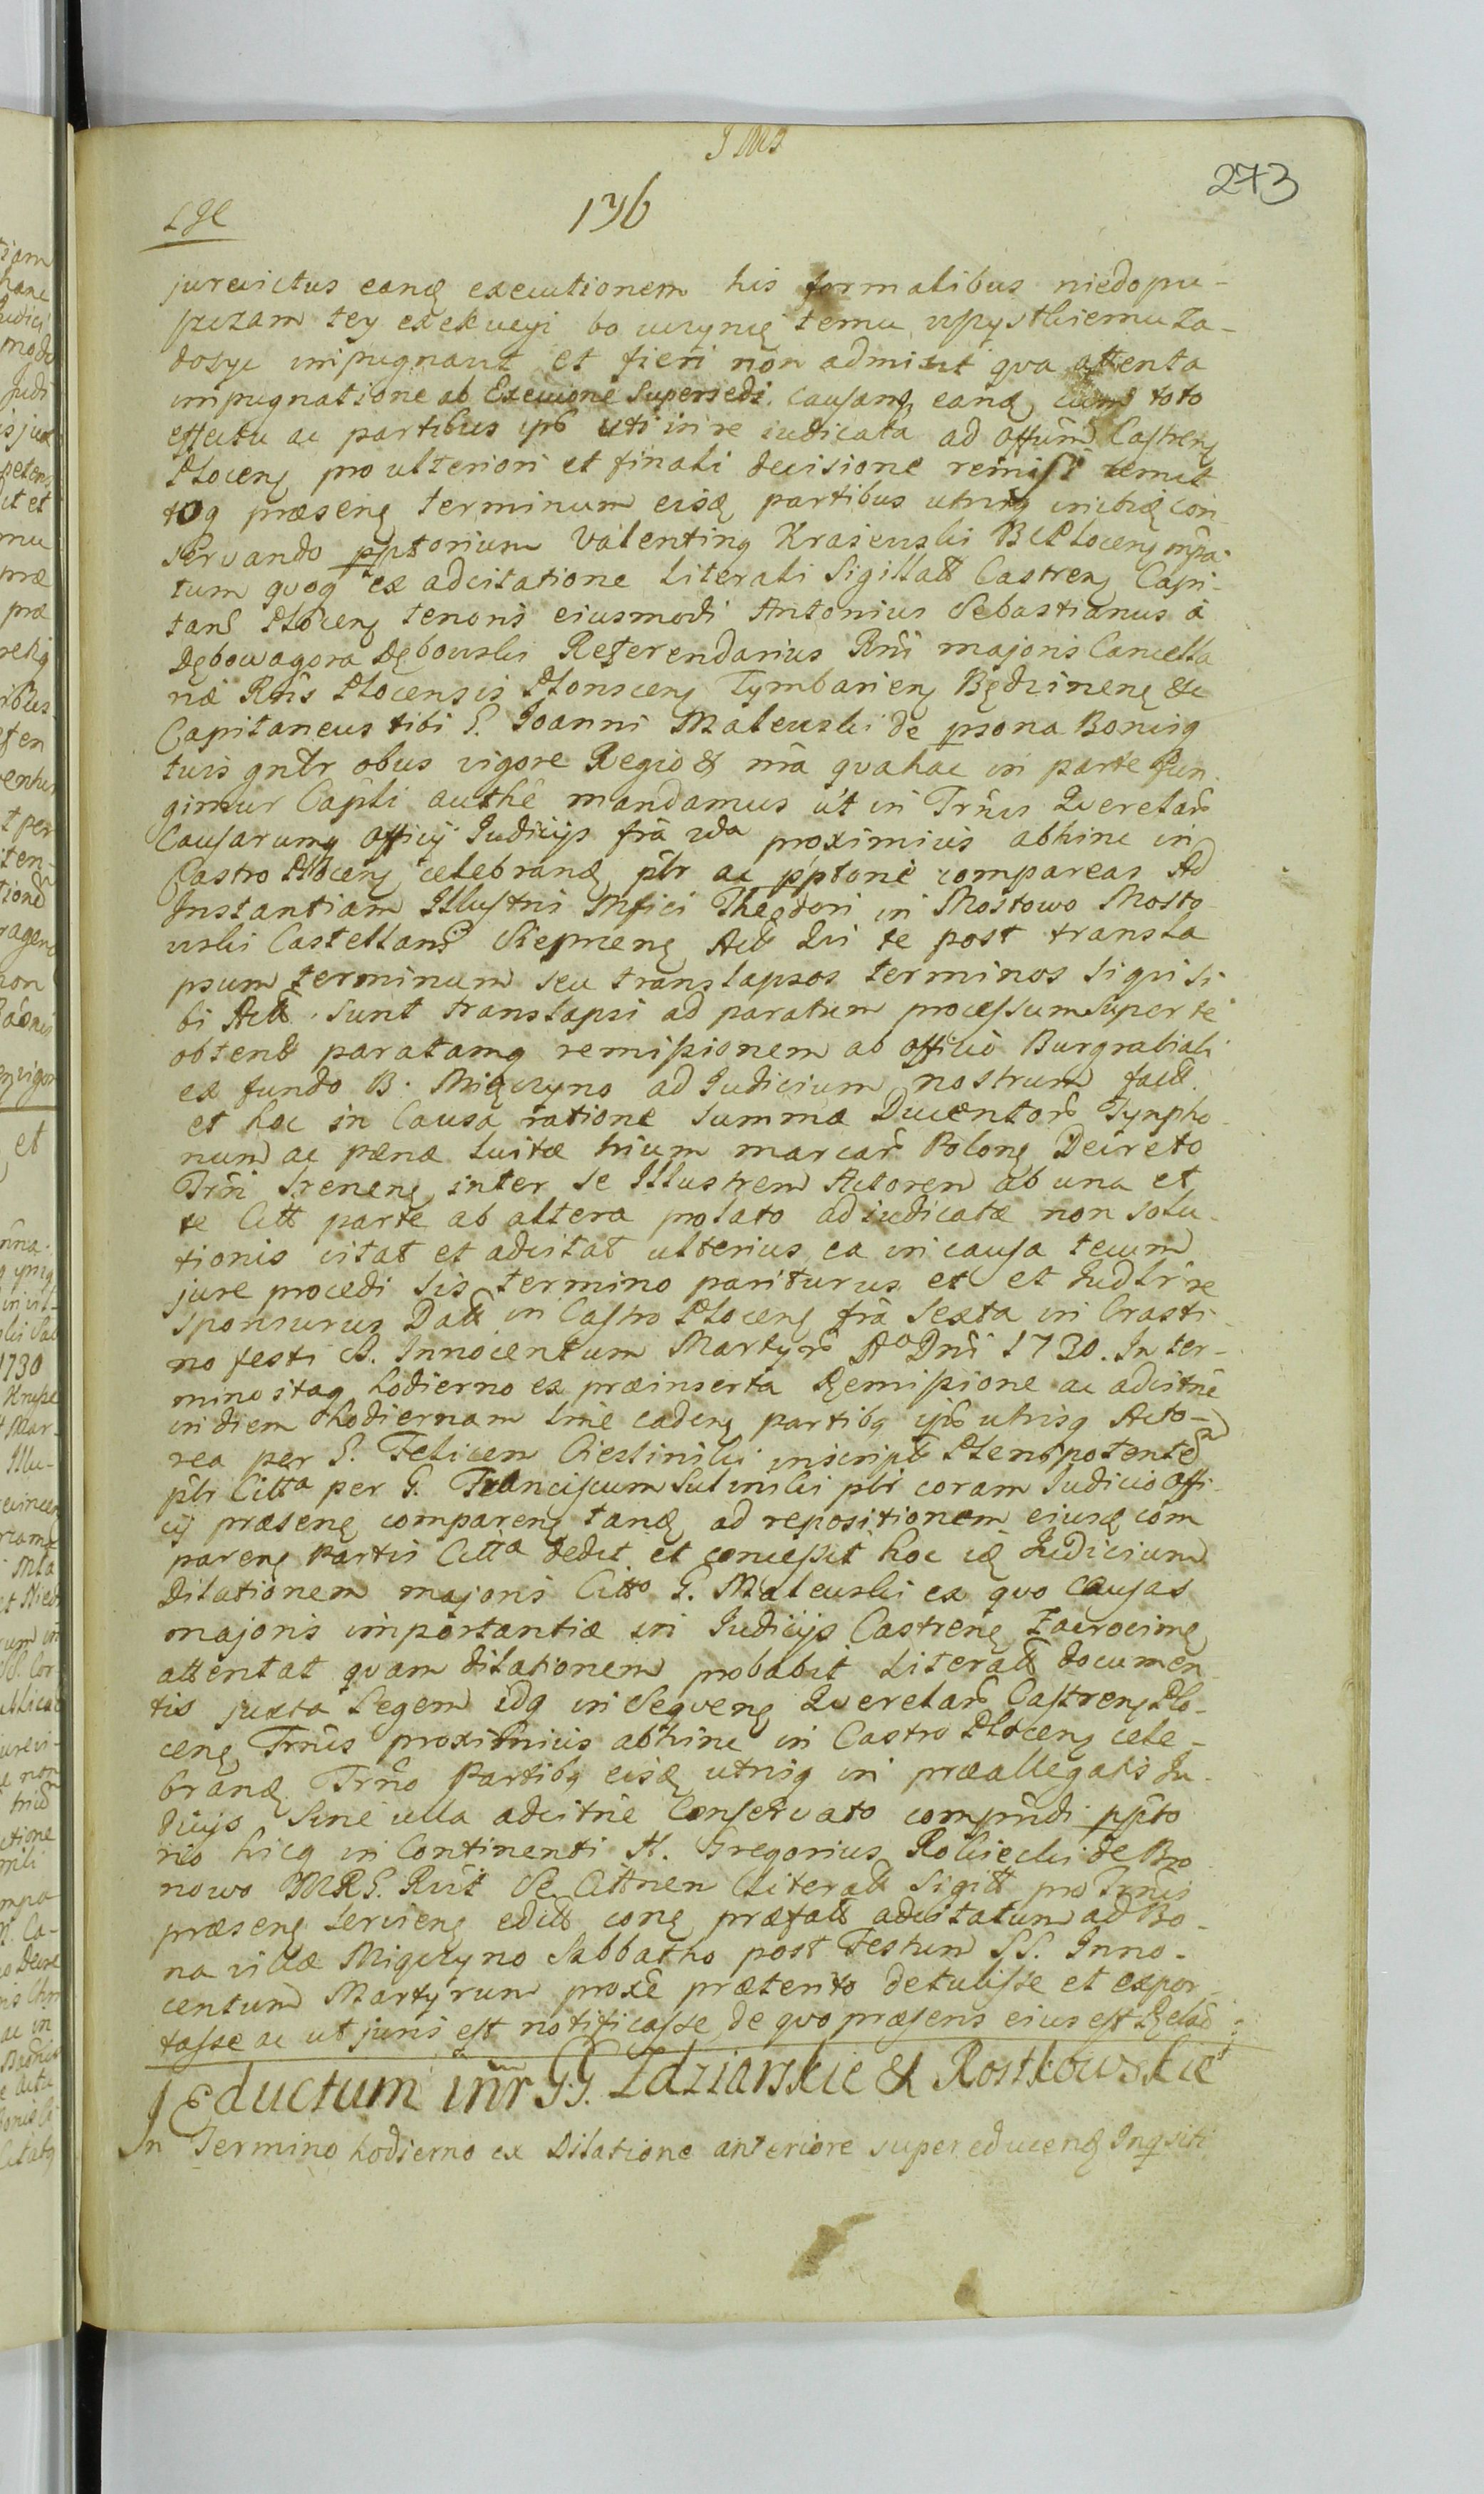 273
136
jurevictus eanq executionem his formalibus niedopu-
szczam tey exekucyi bo uczynię temu wszystkiemu za-
dosyc impugnavit et fieri non admisit qva attenta
impugnatione ab Execuione Supersedi. Causamq eanq cum toto
effectu ac partibus ips uti in re iudicata ad offum Castrens
Plocens pro ulteriori et finali decisione remisi
toq præsens terminum eisq partibus utrisq
servando Valentinq Krasewski Plocens
tum qvoq ex adcitatione Literali Sigillatt Castrens Capi-
tans Plocens tenoris eiusmodi Antonius Sebastianus à
Dębowagora Dębowski Referendarius Rni majoris Cancella
riæ Rnis Plocensis Plonscens Tymbariens Będzinens &c
Capitaneus tibi G. Joanni Malewski de psona Bonisq
tuis gnlr obus vigore Regio & mã qva hac in parte fun
gimur Capli authe mandamus ut in Trnis Qverelars
Causarumq Officij Judicijs frã 2da proximius abhinc in
Castro Plocens celebranq plr ac pptorie compareas Ad
Instantiam Illustris Mfici Theodori in Mostowo Mosto
wski Castellani Sieprcens Act Qvi te post transla
psum terminum seu translapsos terminos si qvi si
bi Act. sunt translapsi ad paratum processum super te
obtent paratamq remissionem ab officio Burgrabiali
ex fundo B. Migczyno ad Judicium nostrum fact.
et hoc in Causa ratione summæ Ducentors Tympho
num ac pænæ luitæ trium marcars Polons Decreto
Trni Srenens inter se Illustrem Actorem ab una et
te Citt parte ab altera prolato adiudicatæ non solu-
tionis citat et adcitat ulterius ea in causa tecum
jure procedi sis termino pariturus et et Judlr re
sponsurus Datt in Castro Plocens frã Sexta in Crasti-
no festi Innocentum Martyrs Ao Dni 1730. In ter-
mino itaq hodierno ex præinserta Remissione ac adcitne
in diem hodiernam lme cadens partibq ips utrisq Acto-
rea per G. Felicem Cieslinski inscript Plenipotente
plr Citta per G. Franciscum Sulinski plr coram Judicio Offi-
cij præsens comparens tanq ad repositionem eiusq com
parens Partis Citta dedit et concessit hoc iq Judicium
Dilationem majoris Citto G. Malewski ex qvo causas
majoris importantiæ in Judicijs Castrens Zacrocims
attentat qvam dilationem probabit Literatt documen-
tis juxta Legem idq in Seqvens Qverelars Castrens Plo-
cens Trnis proximius abhinc in Castro Plocens cele-
branq Trno Partibq eisq utrisq in præallegatis Ju-
dicijs Sine ulla adcitne Conservato comprndi ppto
rio hicq in Continenti N. Gregorius Rokicki de Bro
nowo MRG. Rcit Se Cittnem Literatt Sigitt pro Trnis
præsens serviens edict cons præfatt adcitatum ad Bo-
na villæ Migczyno Sabbatho post Festum SS. Inno-
centum Martyrum proxe præterito detulisse et expor
tasse ac ut juris est notificasse de qvo præsens eius est Relao
Eductum intr GG. Zdziarskie & Rostkowskie
In Termino hodierno ex Dilatione anteriore super educenq Inqsiti